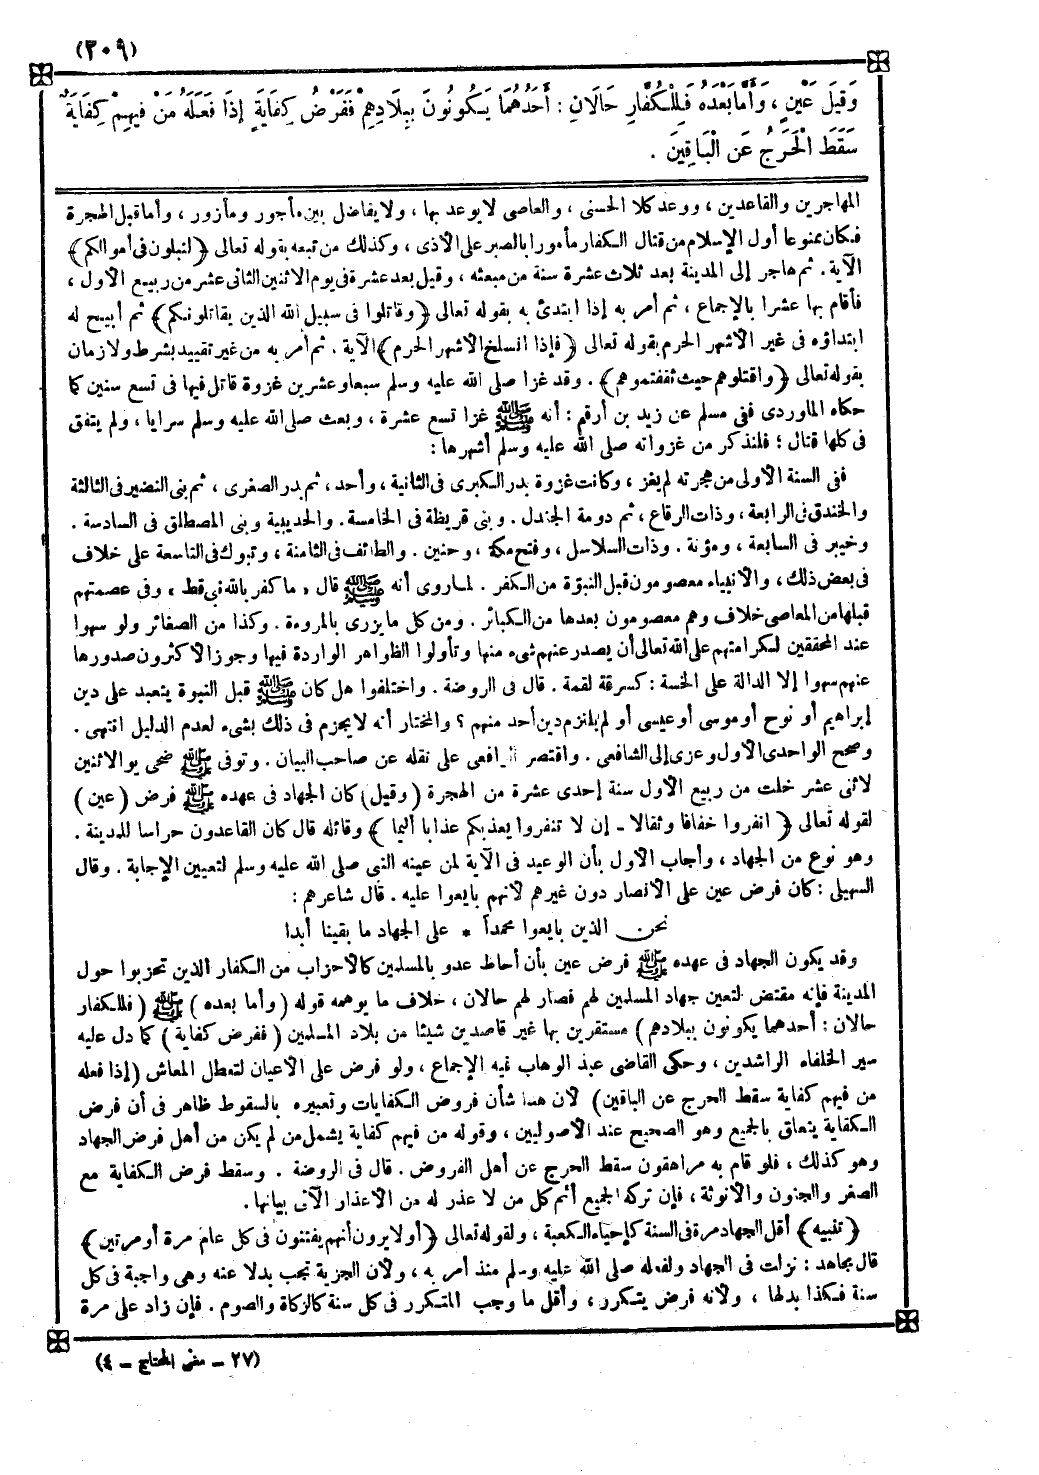 (٢٠٩)
وَقِيلَ عَيْنٍ ، وَأَمَّا بَعْدَهُ فَلِلْكُفَّارِ حَالَانِ : أَحَدُهُمَا يَكُونُونَ بِبِلَادِهِمْ فَفَرْضُ كِفَايَةٍ إِذَا فَعَلَهُ مَنْ فِيهِمْ كِفَايَةٌ
سَقَطَ الْحَرَجُ عَنِ الْبَاقِينَ .
المهاجرين والقاعدين ، ووعد كلا الحسنى ، والعاصى لا يوعد بها ، ولا يفاضل بين مأجور ومأزور ، وأما قبل الهجرة
فكان ممنوعا أول الإسلام من قتال الكفار مأمورا بالصبر على الأذى ، وكذلك من تبعه بقوله تعالى ﴿ لتبلون فى أموالكم ﴾
الآية . ثم هاجر إلى المدينة بعد ثلاث عشرة سنة من مبعثه ، وقيل بعد عشرة فى يوم الاثنين الثانى عشر من ربيع الأول ،
فأقام بها عشرا بالإجماع ، ثم أمر به إذا ابتدئ به بقوله تعالى ﴿ وقاتلوا فى سبيل الله الذين يقاتلونكم ﴾ ثم أبيح له
ابتداؤه فى غير الأشهر الحرم بقوله تعالى ﴿ فإذا انسلخ الأشهر الحرم ﴾ الآية . ثم أمر به من غير تقييد بشرط ولا زمان
بقوله تعالى ﴿ واقتلوهم حيث ثقفتموهم ﴾ . وقد غزا صلى الله عليه وسلم سبعا وعشرين غزوة قاتل فيها فى تسع سنين كما
حكاه الماوردى ففى مسلم عن زيد بن أرقم : أنه ﷺ غزا تسع عشرة ، وبعث صلى الله عليه وسلم سرايا ، ولم يتفق
فى كلها قتال ؛ فلنذكر من غزواته صلى الله عليه وسلم أشهرها :
ففى السنة الأولى من هجرته لم يغز ، وكانت غزوة بدر الكبرى فى الثانية ، وأحد ، ثم بدر الصغرى ، ثم بنى النضير فى الثالثة
والخندق فى الرابعة ، وذات الرقاع ، ثم دومة الجندل . وبنى قريظة فى الخامسة . والحديبية وبنى المصطلق فى السادسة .
وخيبر فى السابعة ، ومؤتة . وذات السلاسل ، وفتح مكة ، وحنين . والطائف فى الثامنة ، وتبوك فى التاسعة على خلاف
فى بعض ذلك ، والأنبياء معصومون قبل النبوة من الكفر . لما روى أنه ﷺ قال « ما كفر بالله نبى قط » وفى عصمتهم
قبلها من المعاصى خلاف وهم معصومون بعدها من الكبائر . ومن كل ما يزرى بالمروءة . وكذا من الصغائر ولو سهوا
عند المحققين لكرامتهم على الله تعالى أن يصدر عنهم شىء منها وتأولوا الظواهر الواردة فيها وجوز الأكثرون صدورها
عنهم سهوا إلا الدالة على الخسة : كسرقة لقمة . قال فى الروضة . واختلفوا هل كان ﷺ قبل النبوة يتعبد على دين
إبراهيم أو نوح أو موسى أو عيسى أو لم يلتزم دين أحد منهم ؟ والمختار أنه لا يجزم فى ذلك بشىء لعدم الدليل انتهى .
وصحح الواحدى الأول وعزى إلى الشافعى . واقتصر الرافعى على نقله عن صاحب البيان . وتوفى ﷺ ضحى يوالاثنين
لاثنى عشر خلت من ربيع الأول سنة إحدى عشرة من الهجرة ( وقيل ) كان الجهاد فى عهده ﷺ فرض ( عين )
لقوله تعالى ﴿ انفروا خفافا وثقالا ـ إن لا تنفروا يعذبكم عذابا أليما ﴾ وقائله قال كان القاعدون حراسا للمدينة .
وهو نوع من الجهاد ، وأجاب الأول بأن الوعيد فى الآية لمن عينه النبى صلى الله عليه وسلم لتعيين الإجابة . وقال
السهيلى : كان فرض عين على الأنصار دون غيرهم لأنهم بايعوا عليه . قال شاعرهم :
نحن الذين بايعوا محمداً * على الجهاد ما بقينا أبدا
وقد يكون الجهاد فى عهده ﷺ فرض عين بأن أحاط عدو بالمسلمين كالأحزاب من الكفار الذين تحزبوا حول
المدينة فإنه مقتض لتعين جهاد المسلمين لهم فصار لهم حالان ، خلاف ما يوهمه قوله ( وأما بعده ) ﷺ ( فللكفار
حالان : أحدهما يكونون ببلادهم ) مستقرين بها غير قاصدين شيئا من بلاد المسلمين ( ففرض كفاية ) كما دل عليه
سير الخلفاء الراشدين ، وحكى القاضى عبد الوهاب فيه الإجماع ، ولو فرض على الأعيان لتعطل المعاش ( إذا فعله
من فيهم كفاية سقط الحرج عن الباقين ) لأن هذا شأن فروض الكفايات وتعبيره بالسقوط ظاهر فى أن فرض
الكفاية يتعلق بالجميع وهو الصحيح عند الأصوليين ، وقوله من فيهم كفاية يشمل من لم يكن من أهل فرض الجهاد
وهو كذلك ، فلو قام به مراهقون سقط الحرج عن أهل الفروض . قال فى الروضة . وسقط فرض الكفاية مع
الصغر والجنون والأنوثة ، فإن تركه الجميع أثم كل من لا عذر له من الأعذار الآتى بيانها .
﴿ تنبيه ﴾ أقل الجهاد مرة فى السنة كإحياء الكعبة ، ولقوله تعالى ﴿ أو لا يرون أنهم يفتنون فى كل عام مرة أو مرتين ﴾
قال مجاهد : نزلت فى الجهاد ولفعله صلى الله عليه وسلم منذ أمر به ، ولأن الجزية تجب بدلا عنه وهى واجبة فى كل
سنة فكذا بدلها ، ولأنه فرض يتكرر ، وأقل ما وجب المتكرر فى كل سنة كالزكاة والصوم . فإن زاد على مرة
(٢٧ ـ مغنى المحتاج ـ ٤)